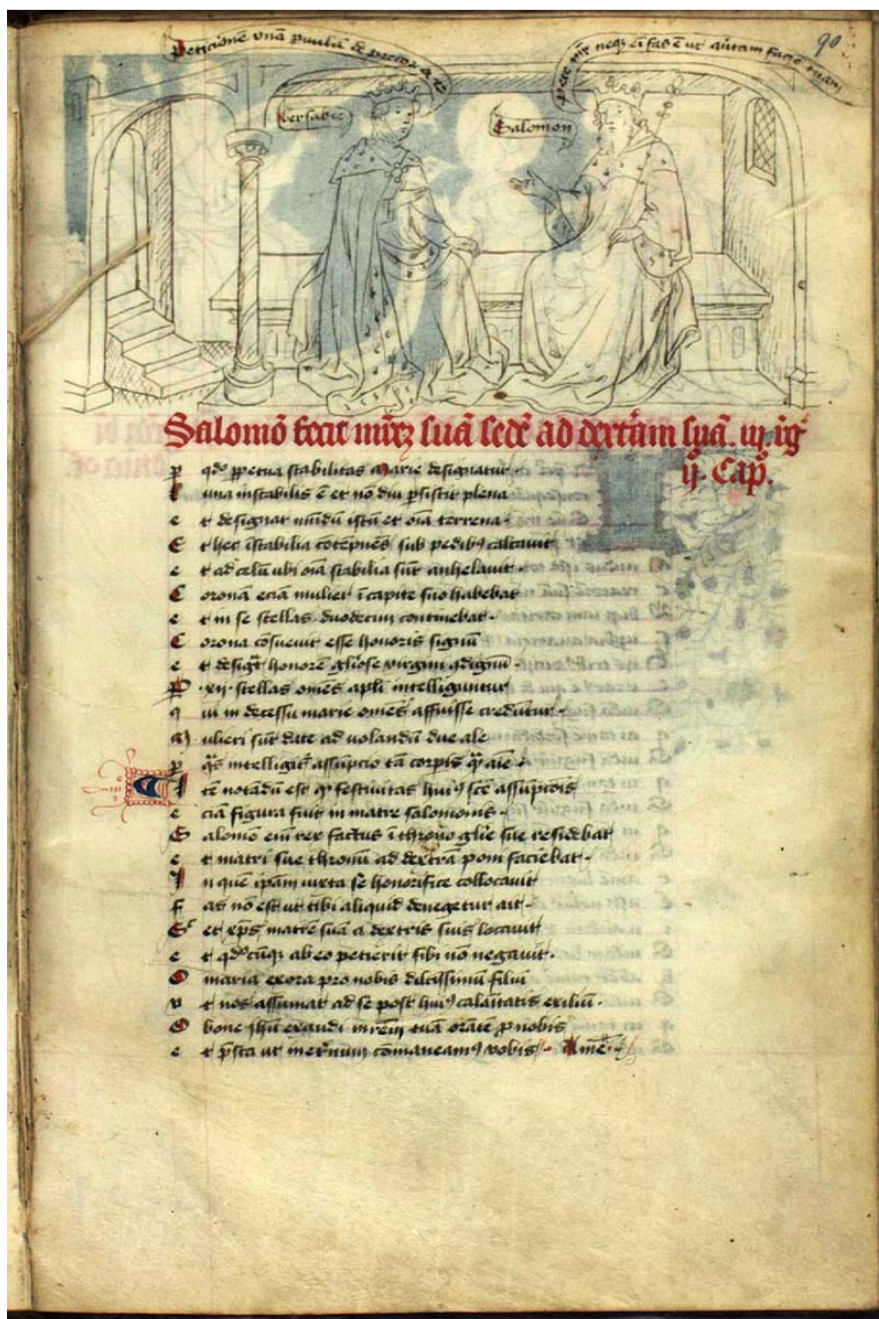 90
Peticionē vnā p̄vulā dep̄cor a te
Pete mr̄ neq; eī fas ē ut aūtam faciē tuam
Bersabee
Salomon
Salomō fecit mr̄ez suā sedē ad dextrām suā. iij. rḡ
ij. Cap̄.
p qd̄o ꝑpetua stabilitas marie designatur.
L una instabilis ē et nō diu ꝑsistit plena
e t designat mūdū istū et oīa terrena.
E t hec īstabilia cōtēpnēs sub pedibꝰ calcavit
e t ad celū ubi oīa stabilia sūt anhelauit.
C oronā eciā mulier ī capite suo habebat
e t in se stellas duodecim continebat.
C orona cōsueuit esse honoris signū
e t desigt̄ honorē gl̄iose virgini ɔdignū.
P .xij. stellas om̄es apl̄i intelliguntur
q ui in decessu marie om̄es affuisse credūtur.
M ulieri sūt date ad uolandū due ale
p q̄s intelligit̄ assūpcio tā corꝑis qm̄ aīe.
I tē notādū est qꝫ festiuitas huiꝰ scē assūpcōis
e ciā figura fuit in matre salomonis.
S alomō eīm rex factus ī throno gl̄ie sue residebat
e t matri sue thronū ad dextrā poni faciebat.
I n quē ip̄am iuxta se honorifice collocauit
F as nō est ut tibi aliquid denegetur ait.
S ic et xp̄s matrē suā a dextris suis locauit
e t qd̄ cūqꝫ ab eo petierit sibi nō negauit.
O maria exora pro nobis dilc̄issimū filiū
v t nos assumat ad se post huiꝰ calāitatis exiliū.
O bone ih̄u exaudi mr̄em tuā orātē ꝓ nobis
e t p̄sta ut in et̄num cōmaneamꝰ vobis. Amē.